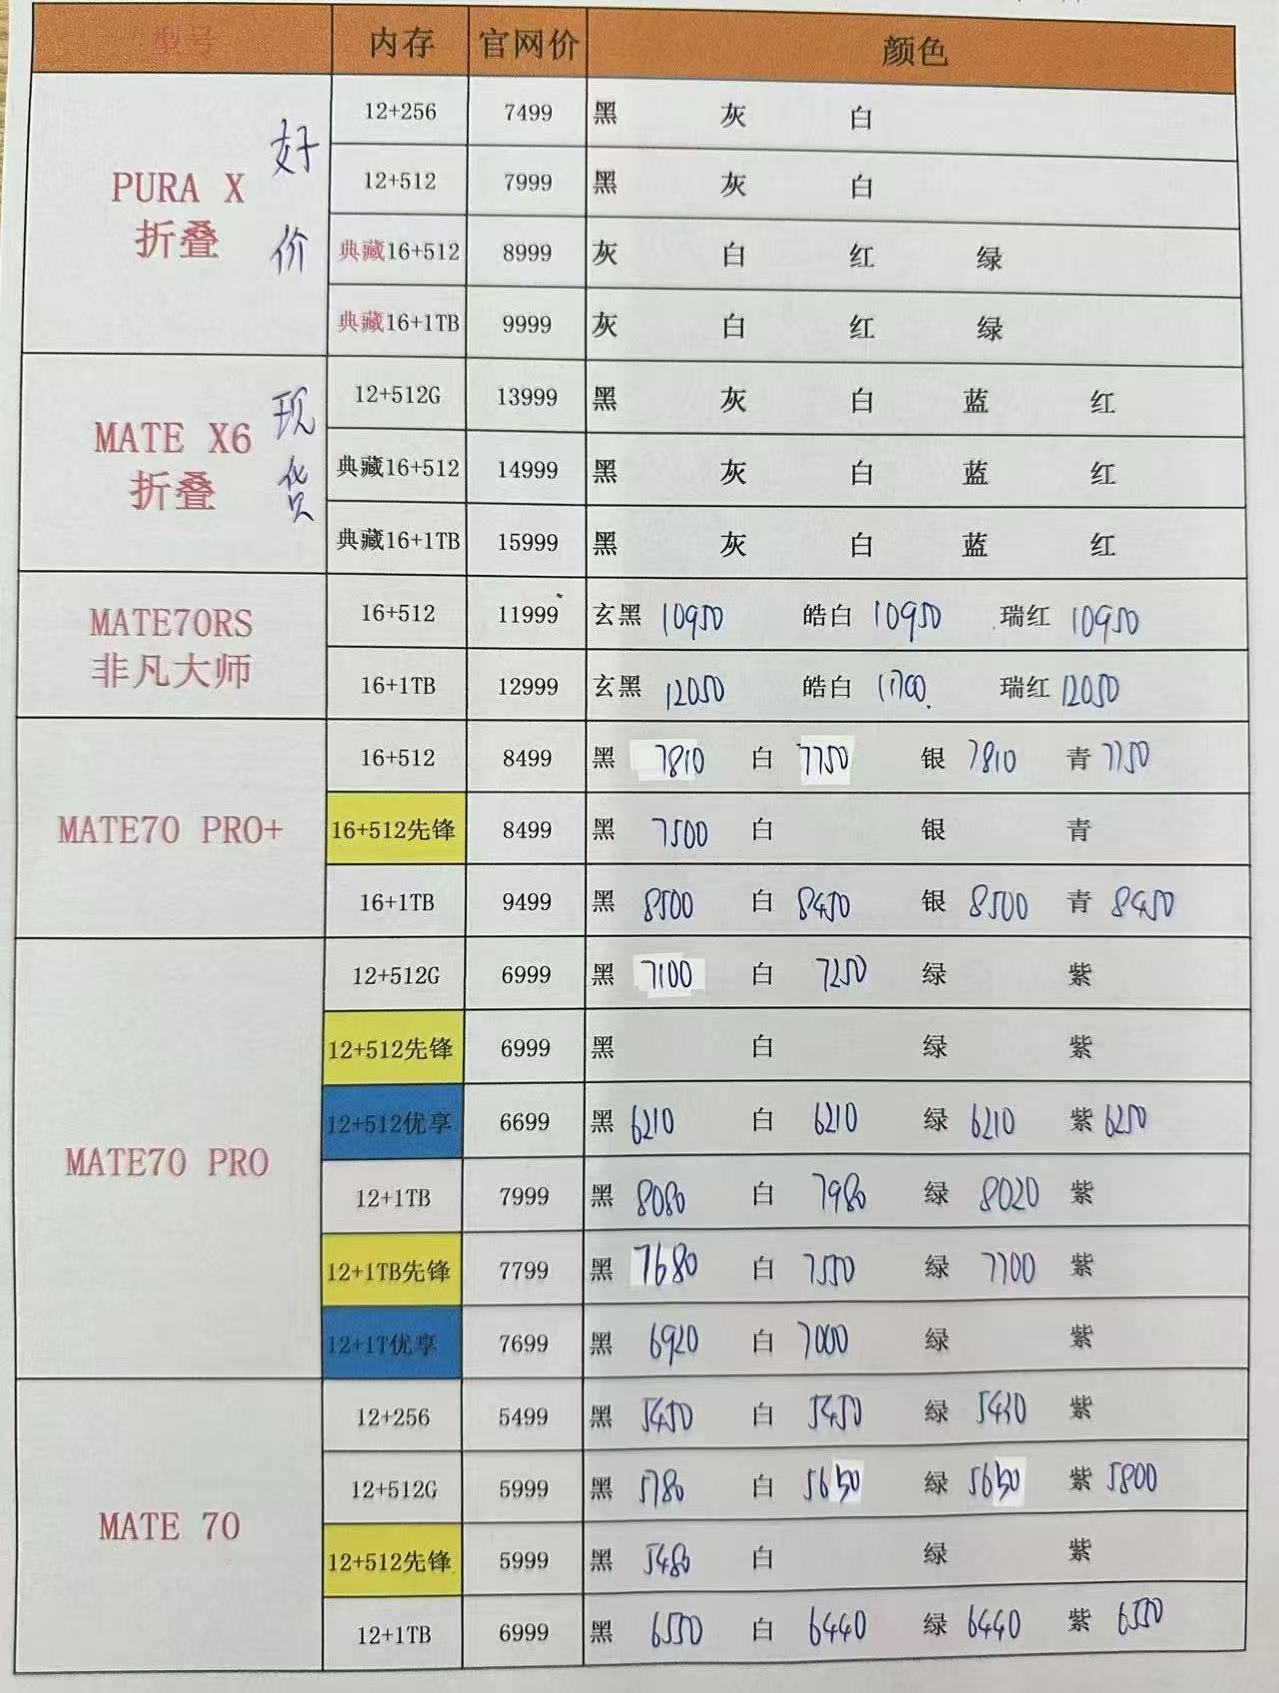 型号 内存 官网价 颜色
PURA X 折叠 好价
12+256 7499 黑 灰 白
12+512 7999 黑 灰 白
典藏16+512 8999 灰 白 红 绿
典藏16+1TB 9999 灰 白 红 绿
MATE X6 折叠 现货
12+512G 13999 黑 灰 白 蓝 红
典藏16+512 14999 黑 灰 白 蓝 红
典藏16+1TB 15999 黑 灰 白 蓝 红
MATE70RS 非凡大师
16+512 11999 玄黑 10950 皓白 10950 瑞红 10950
16+1TB 12999 玄黑 12050 皓白 11700 瑞红 12050
MATE70 PRO+
16+512 8499 黑 7810 白 7750 银 7810 青 7750
16+512先锋 8499 黑 7500 白 银 青
16+1TB 9499 黑 8500 白 8450 银 8500 青 8450
MATE70 PRO
12+512G 6999 黑 7100 白 7250 绿 紫
12+512先锋 6999 黑 白 绿 紫
12+512优享 6699 黑 6210 白 6210 绿 6210 紫 6250
12+1TB 7999 黑 8080 白 7980 绿 8020 紫
12+1TB先锋 7799 黑 7680 白 7550 绿 7700 紫
12+1T优享 7699 黑 6920 白 7000 绿 紫
MATE 70
12+256 5499 黑 5450 白 5450 绿 5430 紫
12+512G 5999 黑 5780 白 5650 绿 5650 紫 5800
12+512先锋 5999 黑 5480 白 绿 紫
12+1TB 6999 黑 6550 白 6440 绿 6440 紫 6550